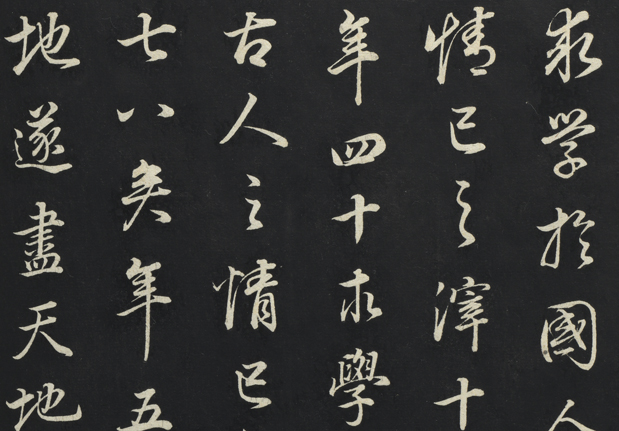 求学於國人
情已之滓十
年四十求學
古人之情已
七八矣年五
地遂盡天地